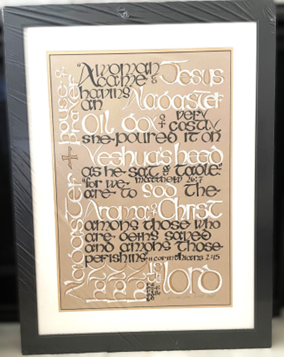 "A woman
came to Jesus
having
an Alabaster
Oil Box of very costly
she poured it on
Yeshua's head
as he sat @ table."
Matthew 26:7
"for we
are to God the
Aroma of Christ
among those who
are being saved
and among those
perishing" II Corinthians 2:15
house of prayer
Alabaster
lord